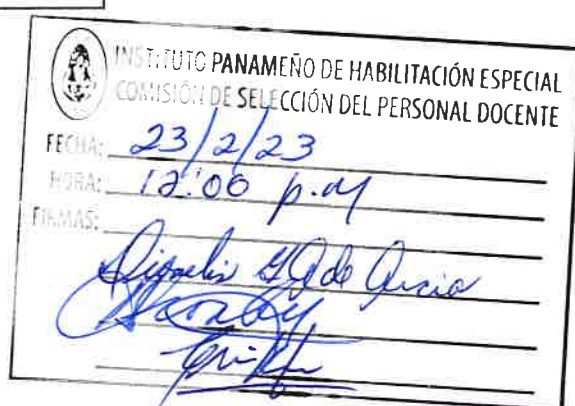 INSTITUTO PANAMEÑO DE HABILITACIÓN ESPECIAL
COMISIÓN DE SELECCIÓN DEL PERSONAL DOCENTE
FECHA: 23/2/23
HORA: 12:00 p.m
FIRMAS:
de